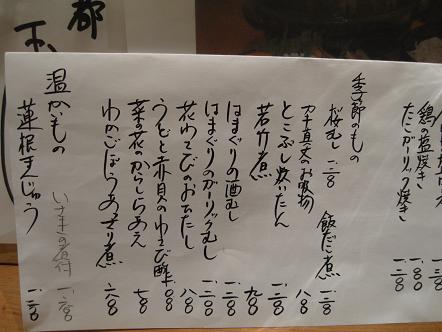 都
鶏の塩焼き 一八〇
たこガーリック焼き 一二〇
季節のもの
桜むし 一二〇
飯だこ煮 一二〇
お吸物 八〇
とこぶし炊いたん 一二〇
若竹煮 九〇
はまぐりの酒むし 一二〇
はまぐりのガーリックむし 一二〇
花わさびのおひたし 八〇
うどと赤貝のわさび酢 一〇〇
菜の花のからしあえ 七〇
わかごぼうあさり煮 六〇
温かいもの
いさきの煮付 一六〇
蓮根まんじゅう 一二〇